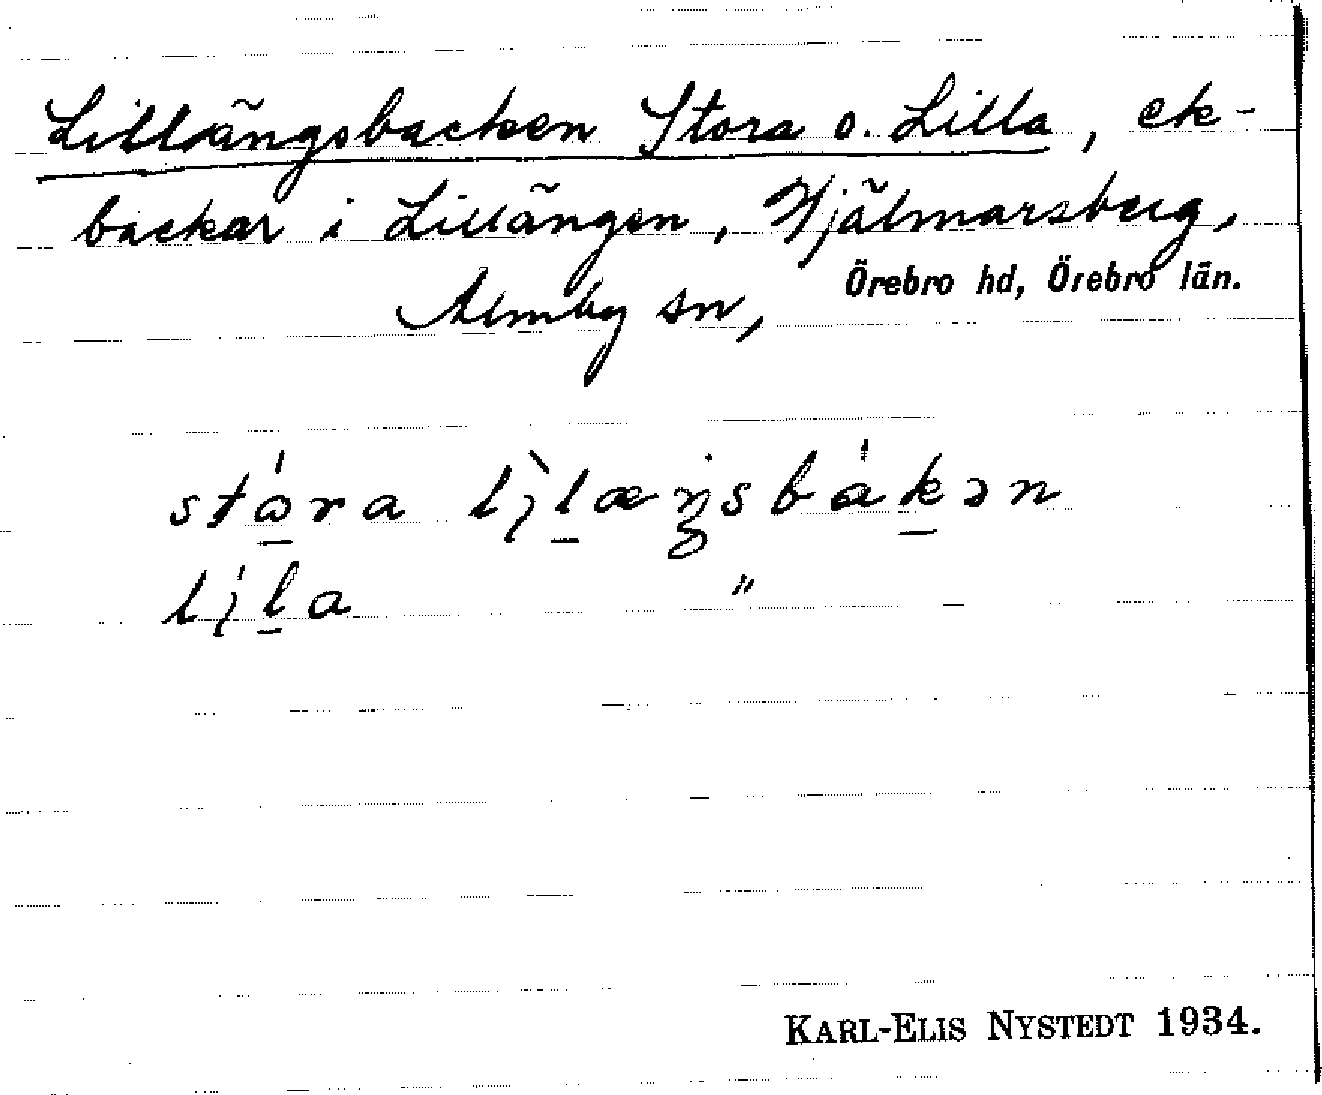 Lillängsbacken Stora o. Lilla, ek-
backar i Lillängen, Hjälmarsberg,
Almby sn, Örebro hd, Örebro län.
stɷ́ra lı̀læŋsbákən
lı́la "
KARL-ELIS NYSTEDT 1934.